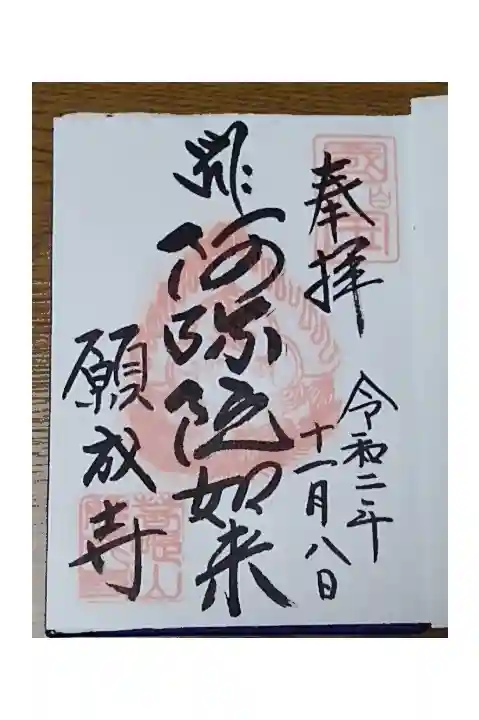 奉拝
令和二年
十一月八日
阿弥陀如来
願成寺